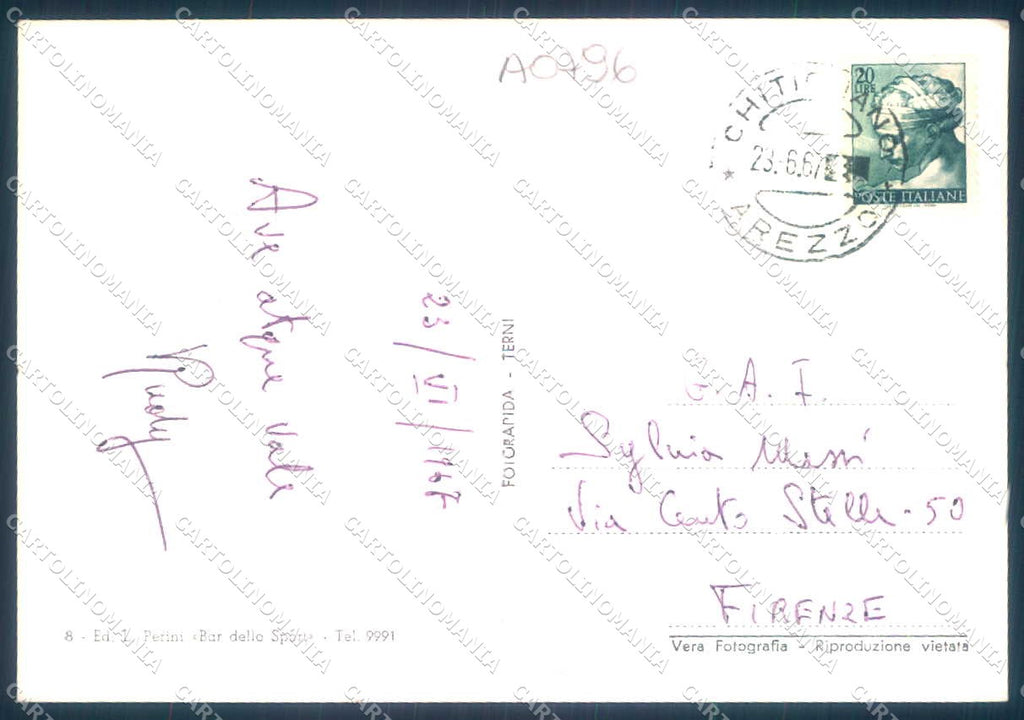 A0796
20
LIRE
POSTE ITALIANE
CHITIGNANO
23.6.67
* AREZZO
23/VI/1967
Ave atque vale
Rudy
FOTORAPIDA - TERNI
G. A. F.
Sylvia Massi
Via Cento Stelle - 50
FIRENZE
8 - Ed. L. Perini «Bar dello Sport» - Tel. 9991
Vera Fotografia - Riproduzione vietata
CARTOLINOMANIA